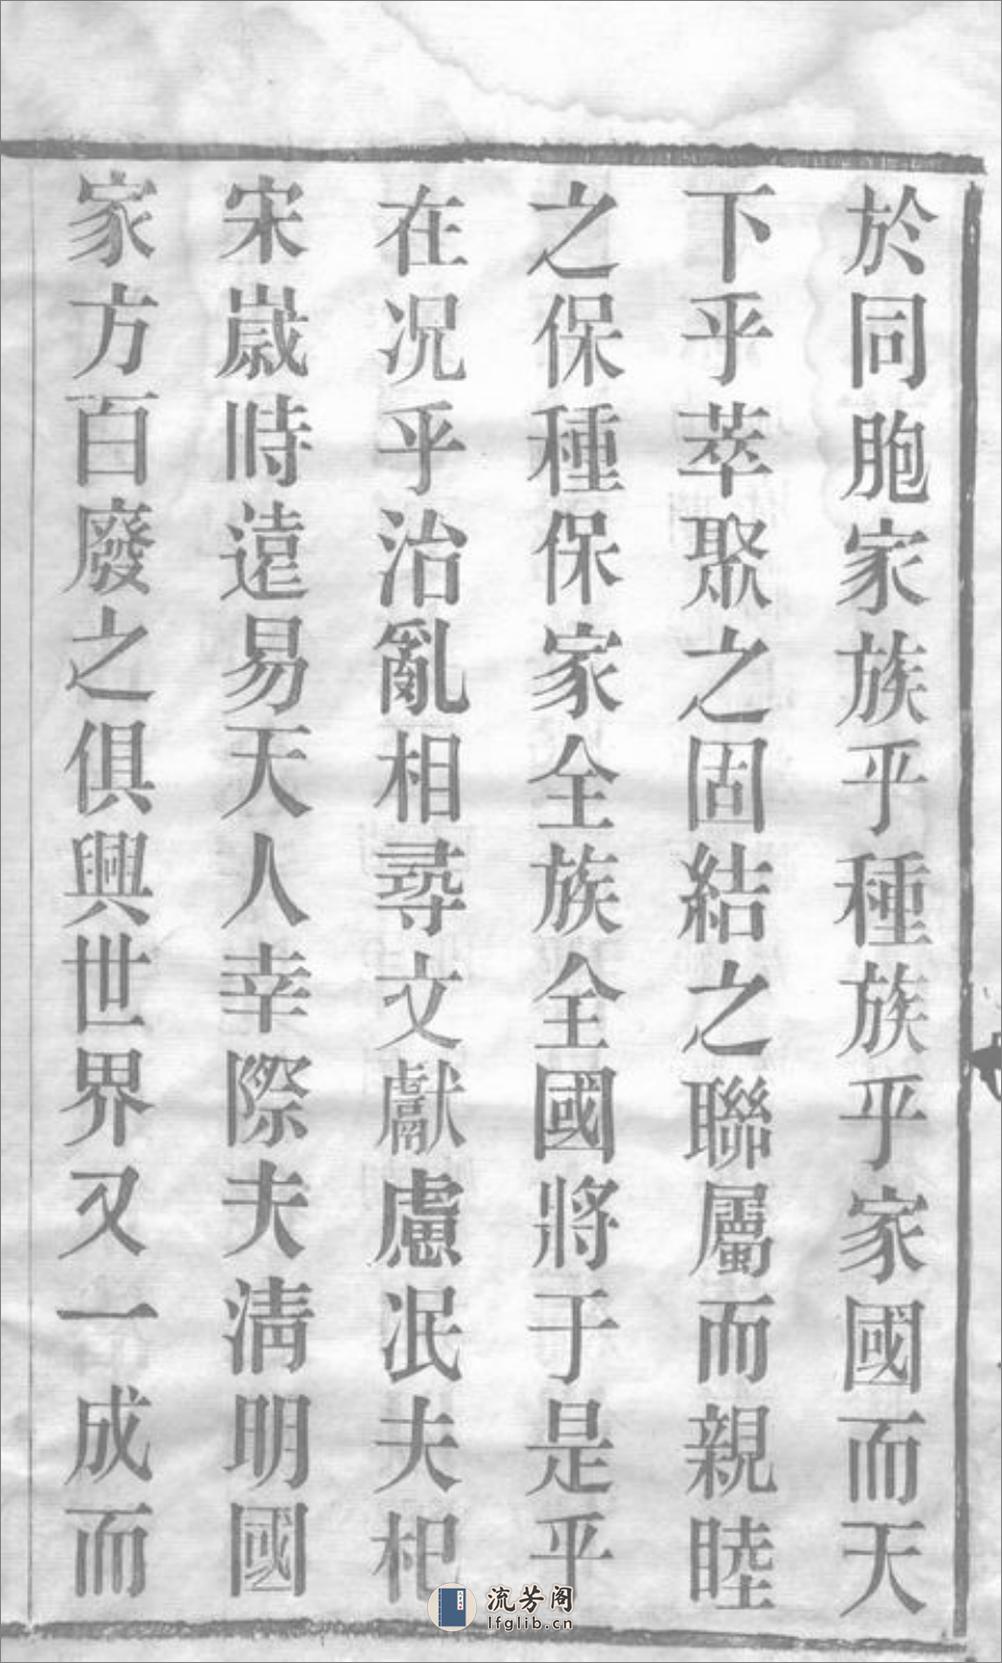 於同胞家族乎種族乎家國而天
下乎萃聚之固結之聯屬而親睦
之保種保家全族全國將于是乎
在况乎治亂相尋文獻慮泯夫杞
宋嵗時遠易天人幸際夫淸明國
家方百廢之俱興世界又一成而
流芳阁
lfglib.cn